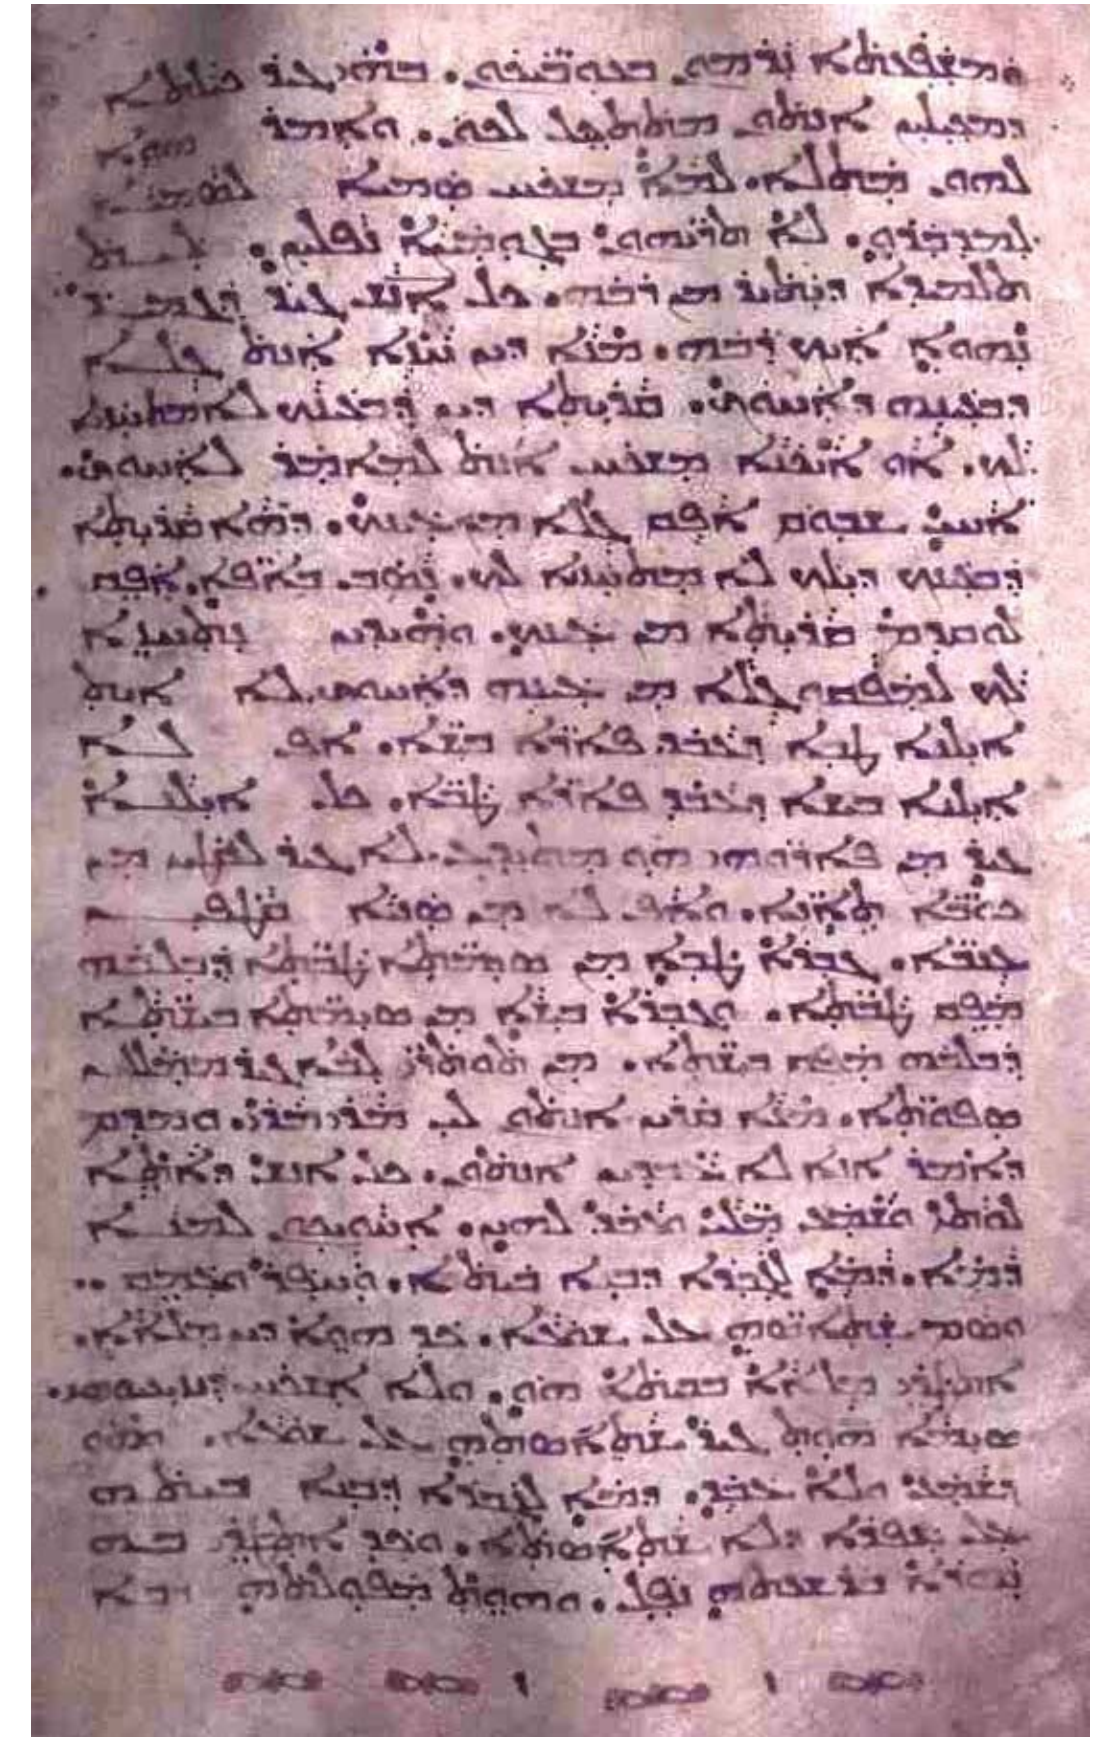 ܘܡܫܦܥܬܐ ܢܪܡܘܢ ܒܥܘܒܝܟܘܢ. ܒܗܝ ܓܝܪ ܟܝܠܬܐ
ܕܡܟܝܠܝܢ ܐܢܬܘܢ ܡܬܬܟܝܠ ܠܟܘܢ. ܘܐܡܪ ܗܘܐ
ܠܗܘܢ ܡܬܠܐ. ܠܡܐ ܡܫܟܚ ܣܡܝܐ ܠܣܡܝܐ
ܠܡܕܒܪܘ. ܠܐ ܬܪܝܗܘܢ ܒܓܘܡܨܐ ܢܦܠܝܢ. ܠܝܬ
ܬܠܡܝܕܐ ܕܝܬܝܪ ܡܢ ܪܒܗ. ܟܠ ܐܢܫ ܓܝܪ ܕܓܡܝܪ
ܢܗܘܐ ܐܝܟ ܪܒܗ. ܡܢܐ ܕܝܢ ܚܙܐ ܐܢܬ ܓܠܐ
ܕܒܥܝܢܗ ܕܐܚܘܟ. ܩܪܝܬܐ ܕܝܢ ܕܒܥܝܢܟ ܠܐ ܡܬܚܙܝܐ
ܠܟ. ܐܘ ܐܝܟܢܐ ܡܫܟܚ ܐܢܬ ܠܡܐܡܪ ܠܐܚܘܟ.
ܐܚܝ ܫܒܘܩ ܐܦܩ ܓܠܐ ܡܢ ܥܝܢܟ. ܕܗܐ ܩܪܝܬܐ
ܕܒܥܝܢܟ ܕܝܠܟ ܠܐ ܡܬܚܙܝܐ ܠܟ. ܢܣܒ ܒܐܦܐ. ܐܦܩ
ܠܘܩܕܡ ܩܪܝܬܐ ܡܢ ܥܝܢܟ. ܘܗܝܕܝܢ ܢܬܚܙܐ
ܠܟ ܠܡܦܩܘ ܓܠܐ ܡܢ ܥܝܢܗ ܕܐܚܘܟ. ܠܐ ܐܝܬ
ܐܝܠܢܐ ܛܒܐ ܕܥܒܕ ܦܐܪܐ ܒܝܫܐ. ܐܦ ܠܐ
ܐܝܠܢܐ ܒܝܫܐ ܕܥܒܕ ܦܐܪܐ ܛܒܐ. ܟܠ ܐܝܠܢܐ
ܓܝܪ ܡܢ ܦܐܪܘܗܝ ܗܘ ܡܬܝܕܥ. ܠܐ ܓܝܪ ܠܩܛܝܢ ܡܢ
ܟܘܒܐ ܬܐܢܐ. ܘܐܦ ܠܐ ܡܢ ܣܢܝܐ ܩܛܦܝܢ
ܥܢܒܐ. ܓܒܪܐ ܛܒܐ ܡܢ ܣܝܡܬܐ ܛܒܬܐ ܕܒܠܒܗ
ܡܦܩ ܛܒܬܐ. ܘܓܒܪܐ ܒܝܫܐ ܡܢ ܣܝܡܬܐ ܒܝܫܬܐ
ܕܒܠܒܗ ܡܦܩ ܒܝܫܬܐ. ܡܢ ܬܘܬܪܝ ܠܒܐ ܓܝܪ ܡܡܠܠܢ
ܣܦܘܬܐ. ܡܢܐ ܩܪܝܢ ܐܢܬܘܢ ܠܝ ܡܪܝ ܡܪܝ. ܘܡܕܡ
ܕܐܡܪ ܐܢܐ ܠܐ ܥܒܕܝܢ ܐܢܬܘܢ. ܟܠ ܐܢܫ ܕܐܬܐ
ܠܘܬܝ ܘܫܡܥ ܡܠܝ ܘܥܒܕ ܠܗܝܢ. ܐܚܘܝܟܘܢ ܠܡܢܐ
ܕܡܐ. ܕܡܐ ܠܓܒܪܐ ܕܒܢܐ ܒܝܬܐ. ܘܚܦܪ ܘܥܡܩ
ܘܣܡ ܫܬܐܣܐ ܥܠ ܫܘܥܐ. ܟܕ ܗܘܐ ܕܝܢ ܡܠܐܐ.
ܐܬܛܪܝ ܡܠܐܐ ܒܒܝܬܐ ܗܘ. ܘܠܐ ܐܫܟܚ ܕܢܙܝܥܝܘܗܝ.
ܣܝܡܐ ܗܘܬ ܓܝܪ ܫܬܐܣܬܗ ܥܠ ܫܘܥܐ. ܘܗܘ
ܕܫܡܥ ܘܠܐ ܥܒܕ. ܕܡܐ ܠܓܒܪܐ ܕܒܢܐ ܒܝܬܗ
ܥܠ ܥܦܪܐ ܕܠܐ ܫܬܐܣܬܐ. ܘܟܕ ܐܬܛܪܝ ܒܗ
ܢܗܪܐ ܒܪ ܫܥܬܗ ܢܦܠ. ܘܗܘܬ ܡܦܘܠܬܗ ܪܒܐ